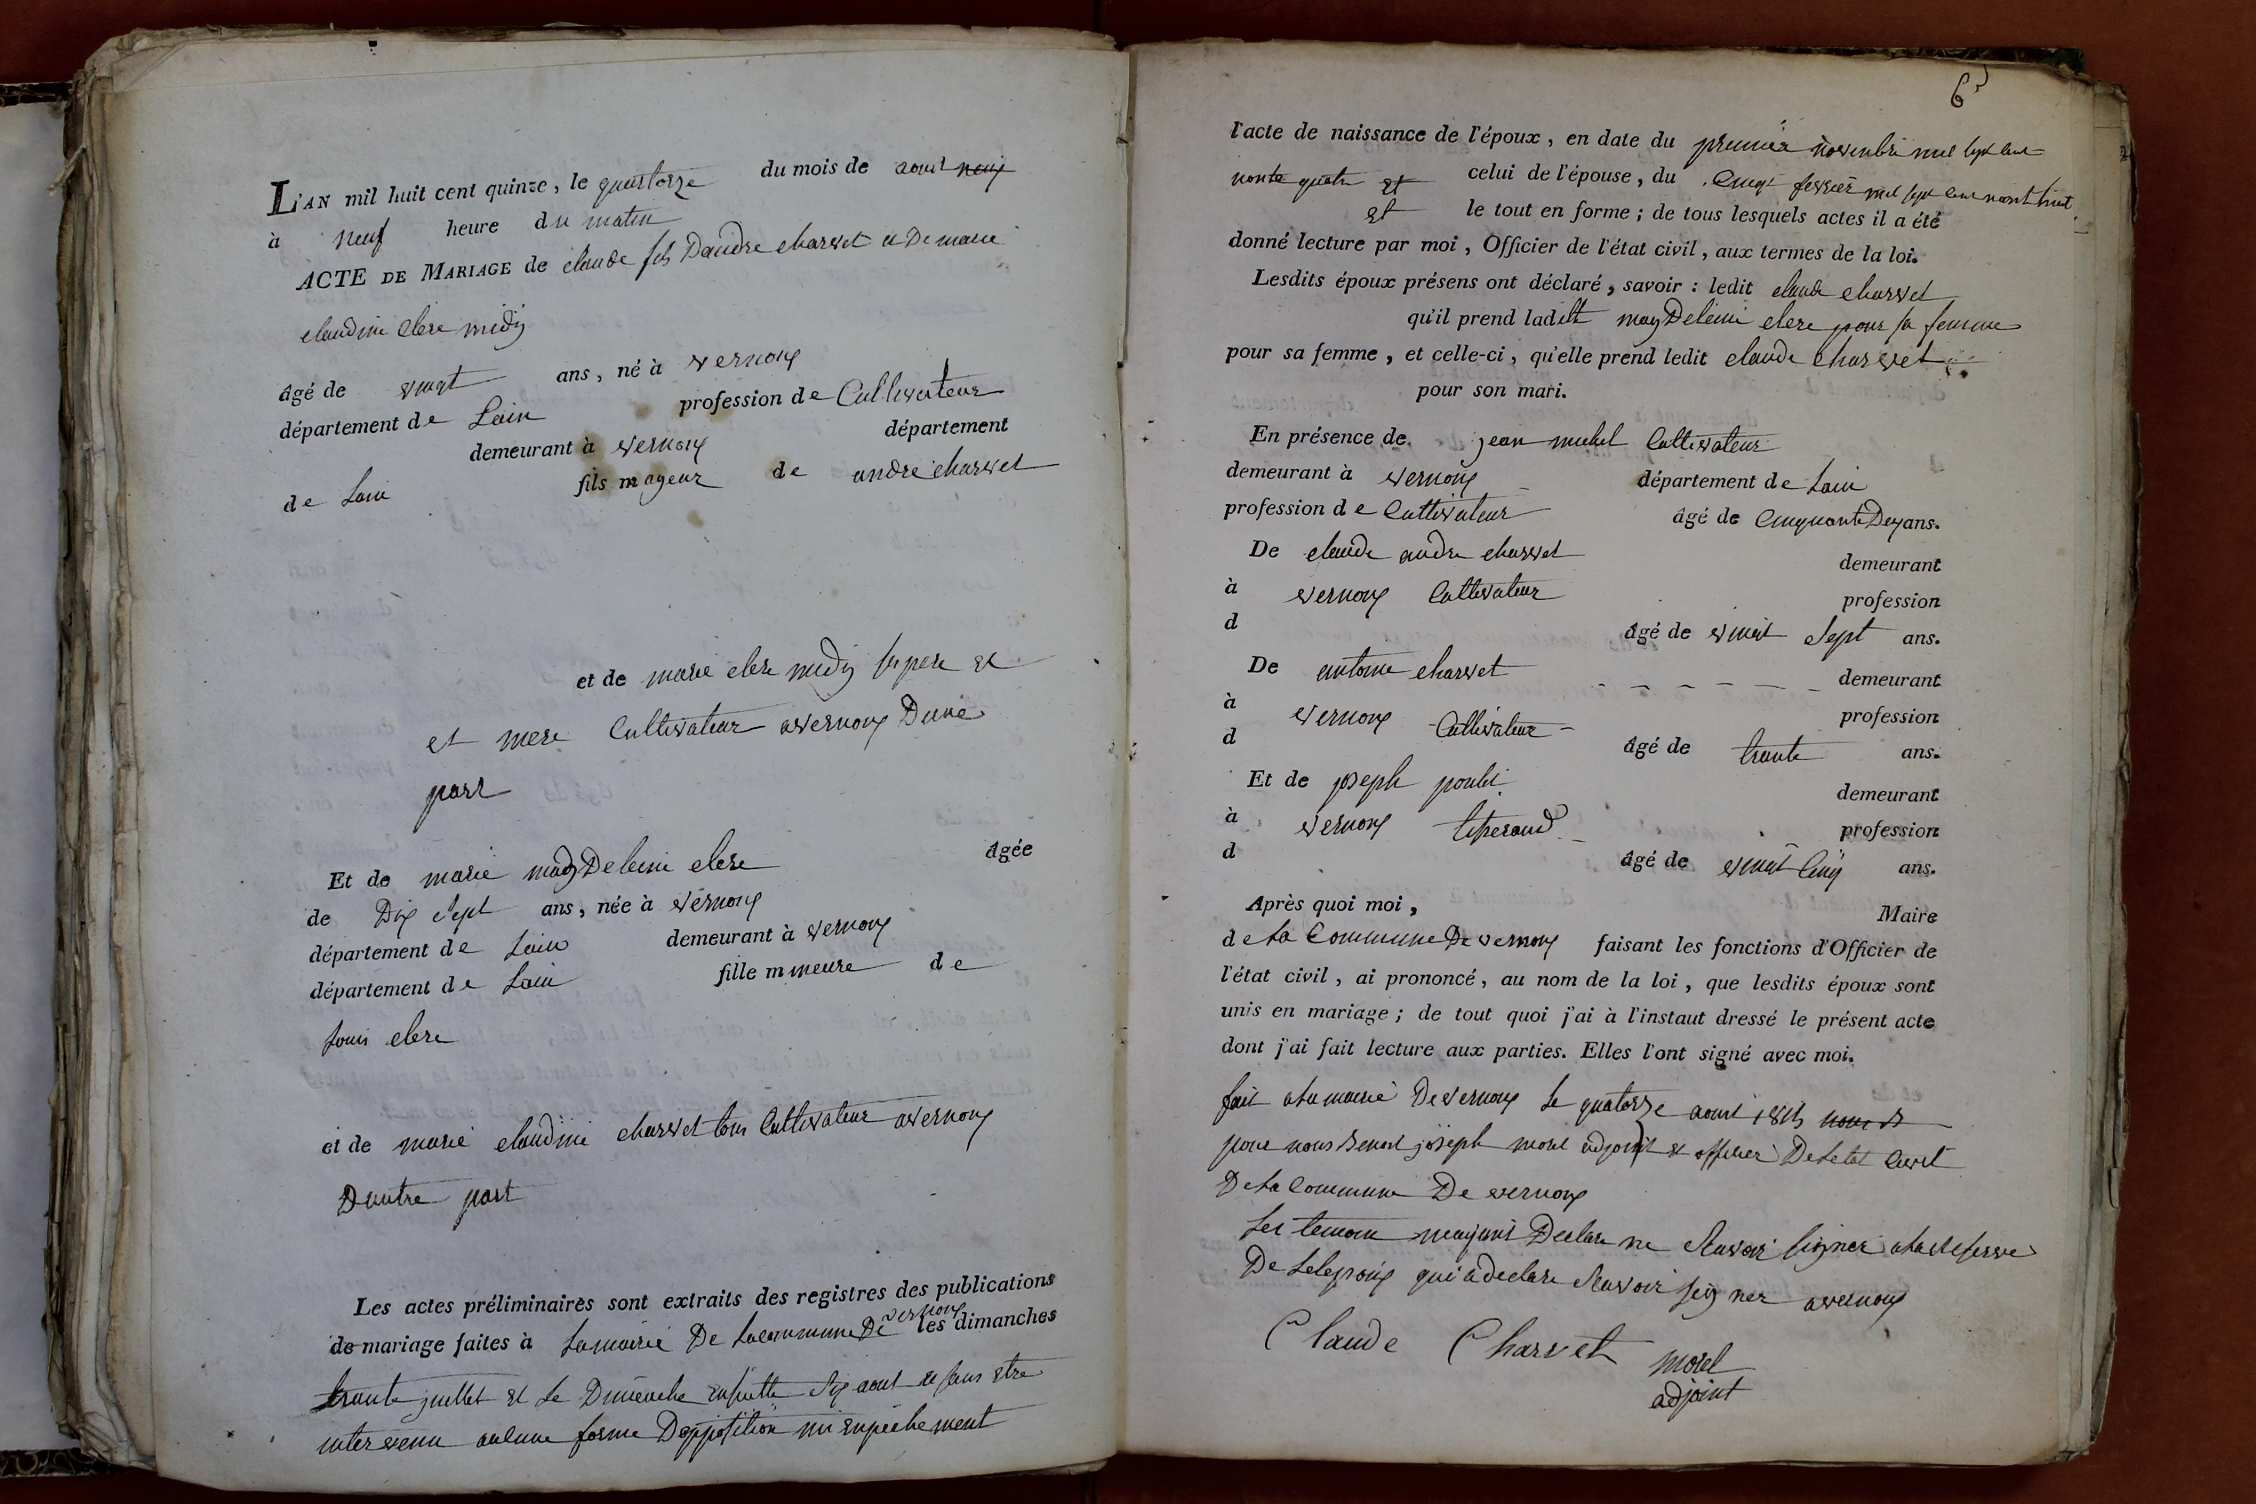 L'AN mil huit cent quinze, le quatorze du mois de aout neuf
à neuf heure du matin
ACTE DE MARIAGE de claude fils Dandre charvet et De marie
claudine clere midy
âgé de vingt ans, né à vernoux
département de Lain profession de Cultivateur
demeurant à vernoux département
de Lain fils mageur de andre charvet
et de marie clere midy ses pere et
et mere Cultivateur avernoux Dune
part
Et de marie magDeleine clere âgée
de Dix Sept ans, née à vernoux
département de Lain demeurant à vernoux
département de Lain fille mineure de
Louis clere
et de marie claudine charvet tous Cultivateur avernoux
Dautre part
Les actes préliminaires sont extraits des registres des publications
de mariage faites à Lamairie De Lacommune De vernoux les dimanches
trante juillet et Le Dimenche ensuitte Six aout et sans etre
intervenu aucune forme Dopposition ni enpechement
65
l'acte de naissance de l'époux, en date du premier novenbre mil sept cent
nonte quatre et celui de l'épouse, du Cinq fevrier mil sept cent nont huit
et le tout en forme; de tous lesquels actes il a été
donné lecture par moi, Officier de l'état civil, aux termes de la loi.
Lesdits époux présens ont déclaré, savoir : ledit claude charvet
qu'il prend ladite magDeleine clere pour sa femme
pour sa femme, et celle-ci, qu'elle prend ledit claude charvet
pour son mari.
En présence de jean michel Cultivateur
demeurant à vernoux département de Lain
profession de Cultivateur âgé de CinquanteDeux ans.
De claude andre charvet demeurant
à vernoux Cultivateur profession
d âgé de vingt Sept ans.
De antoine charvet demeurant
à vernoux Cultivateur profession
d âgé de trante ans.
Et de joseph poulet demeurant
à vernoux tisserand profession
d âgé de vingt Cinq ans.
Après quoi moi, Maire
de La Commune De vernoux faisant les fonctions d'Officier de
l'état civil, ai prononcé, au nom de la loi, que lesdits époux sont
unis en mariage; de tout quoi j'ai à l'instaut dressé le présent acte
dont j'ai fait lecture aux parties. Elles l'ont signé avec moi.
fait alamairie Devernoux Le quatorze aout 1815
pour nous Benoit joseph morel adjoint et officier DeLetat Civil
DeLa Commune De vernoux
Les temoin mayant Declare ne Scavoir Signer alareserve
DeLelepoux qui a declare Scavoir signer avernoux
Claude Charvet morel
adjoint